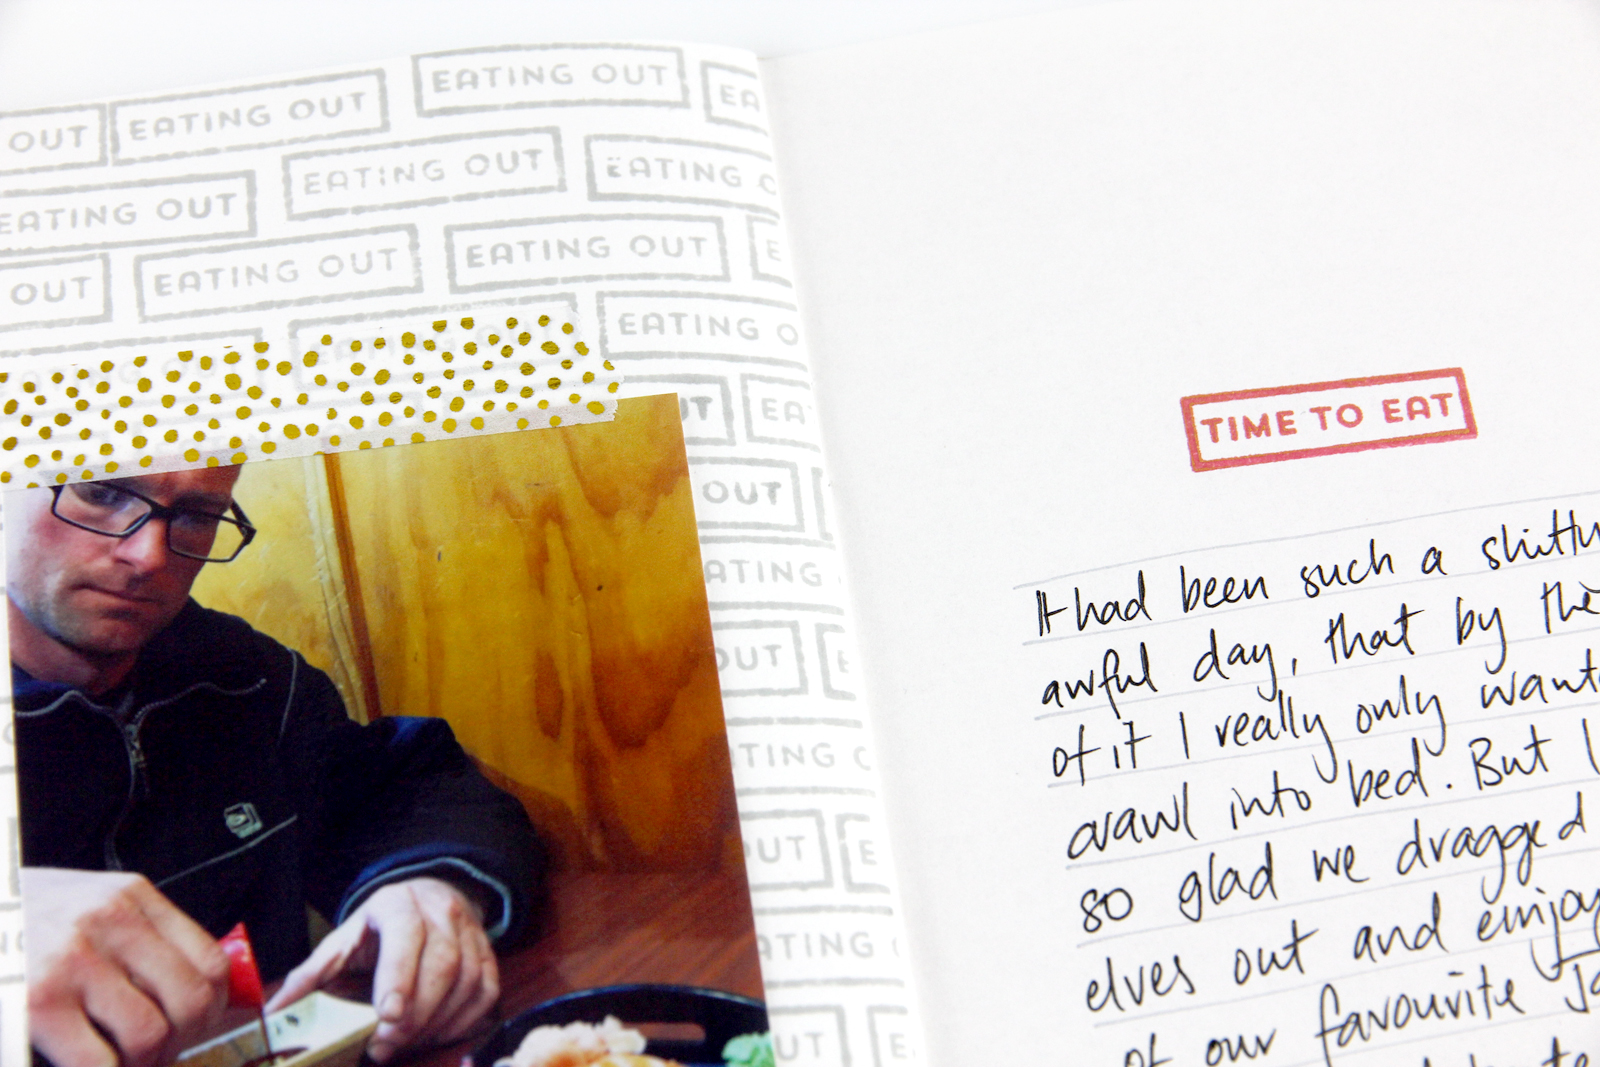 EATING OUT
EA
OUT
EATING OUT
EATING OUT
EATING
EATING OUT
EATING OUT
EATING OUT
E
OUT
EATING O
EATING OUT
UT
EA
OUT
ATING
OUT
E
TING
OUT
E
ATING
UT
E
TIME TO EAT
It had been such a
awful day, that by the
of it I really only want
crawl into bed. But I
so glad we dragged
elves out and
of our favourite Ja